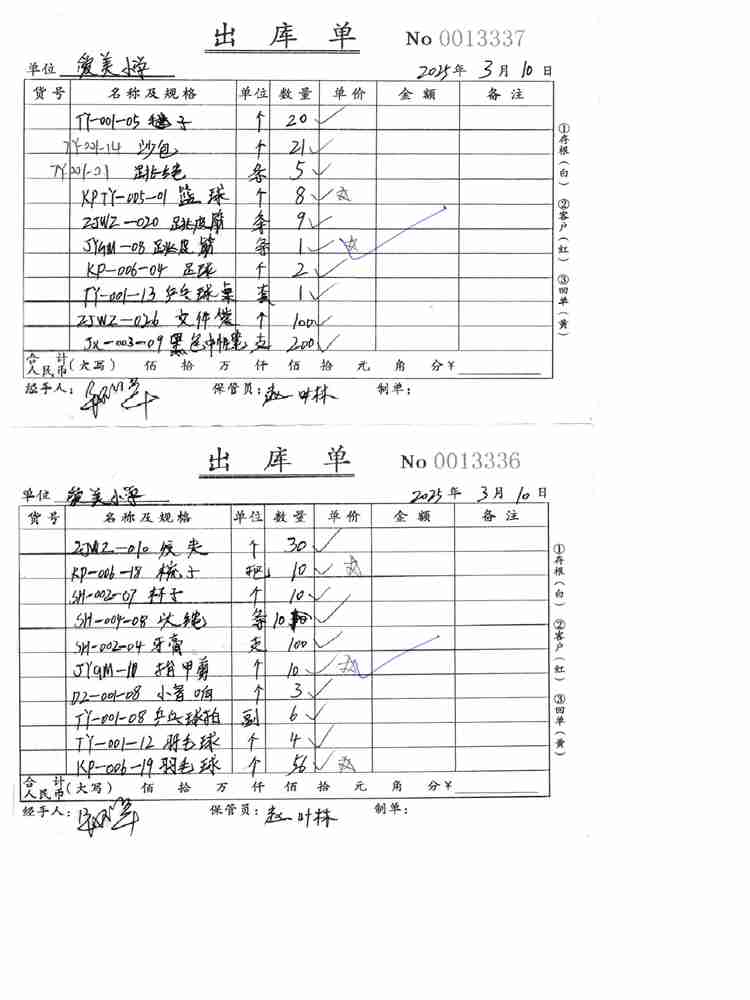 出 库 单 No 0013337
单位 爱美小学 2025年 3月 10日
货号 名称及规格 单位 数量 单价 金额 备注
TY-001-05 毽子 个 20 ✓
TY-001-14 沙包 个 21 ✓
TY-001-01 跳绳 条 5 ✓
KPTY-005-01 篮球 个 8 ✓ ☆
ZJWZ-020 跳皮筋 条 9 ✓
JYGM-08 跳皮筋 条 1 ✓ ☆
KP-006-04 足球 个 2 ✓
TY-001-13 乒乓球桌 套 1 ✓
ZJWZ-026 文件袋 个 100 ✓
JX-003-09 黑色中性笔 支 200 ✓
合计人民币(大写) 佰 拾 万 仟 佰 拾 元 角 分¥
经手人: 保管员:赵叶林 制单:
①存根(白) ②客户(红) ③回单(黄)
出 库 单 No 0013336
单位 爱美小学 2025年 3月 10日
货号 名称及规格 单位 数量 单价 金额 备注
ZJWZ-010 发夹 个 30 ✓
KP-006-18 梳子 把 10 ✓ ☆
SH-002-07 杯子 个 10 ✓
SH-004-08 头绳 条 10 ✓
SH-002-04 牙膏 支 100 ✓
JYGM-11 指甲剪 个 10 ✓ ☆
DZ-001-08 小音响 个 3 ✓
TY-001-08 乒乓球拍 副 6 ✓
TY-001-12 羽毛球 个 4 ✓
KP-006-19 羽毛球 个 56 ✓ ☆
合计人民币(大写) 佰 拾 万 仟 佰 拾 元 角 分¥
经手人: 保管员:赵叶林 制单:
①存根(白) ②客户(红) ③回单(黄)